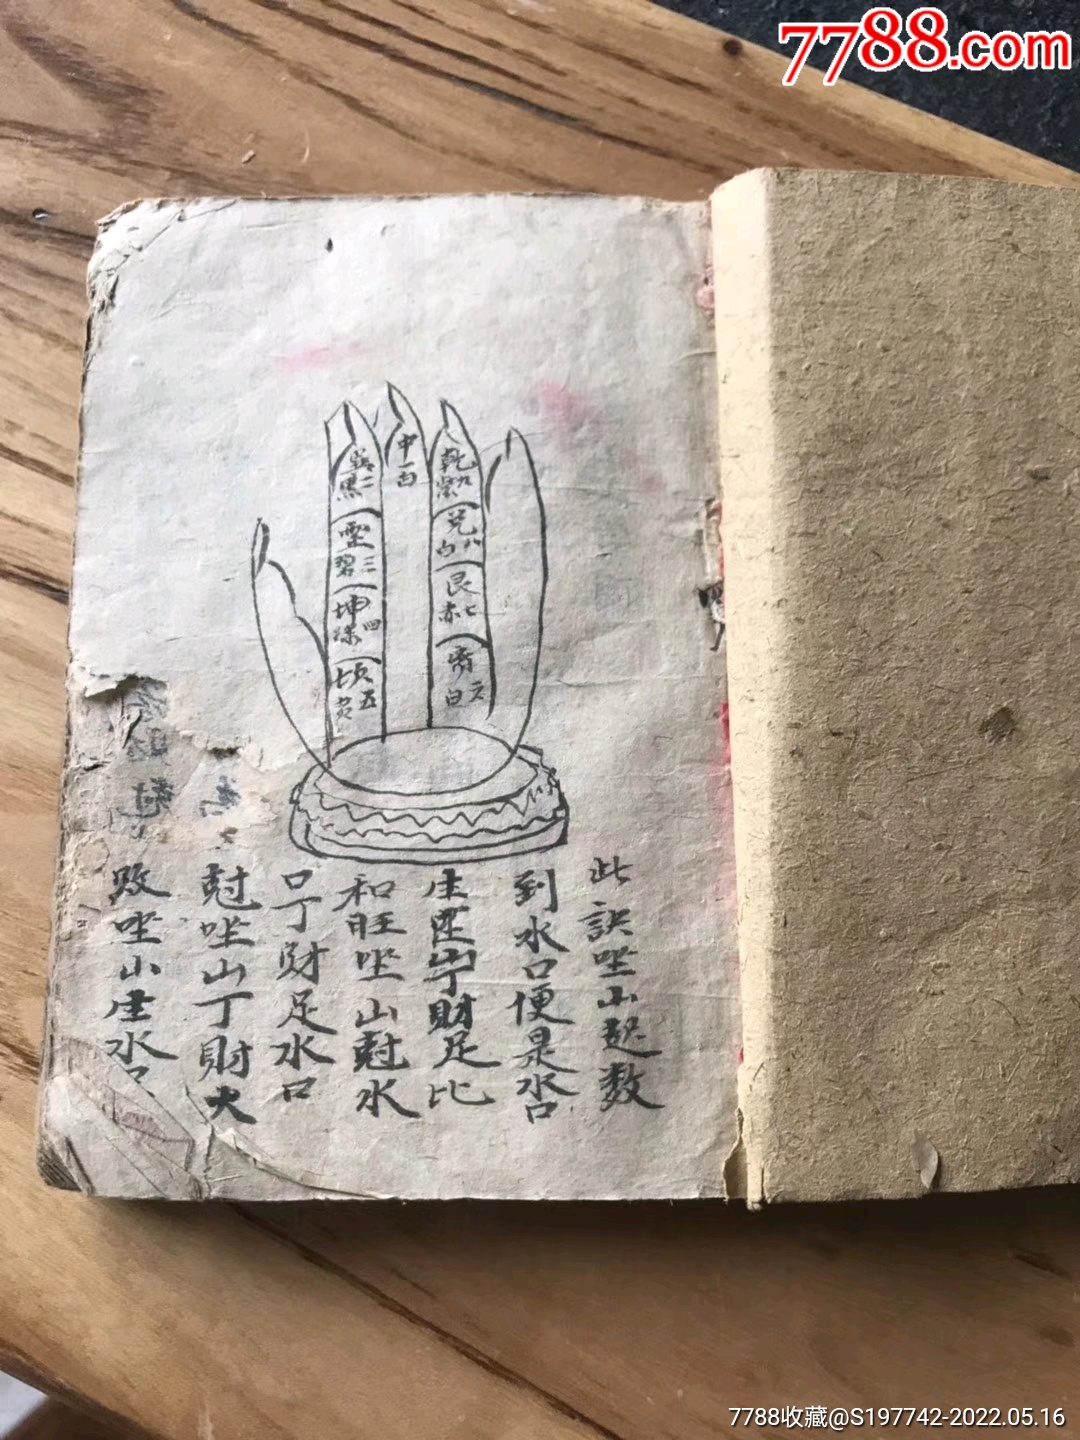 7788.com
中一白
巽二黑
震三碧
坤四綠
坎五黄
乾九紫
兌八白
艮七赤
离六白
此訣坐山起数
到水口便是水口
生坐山丁財足比
和旺坐山尅水
口丁財足水口
尅坐山丁財大
敗坐山生水口
7788收藏@S197742-2022.05.16